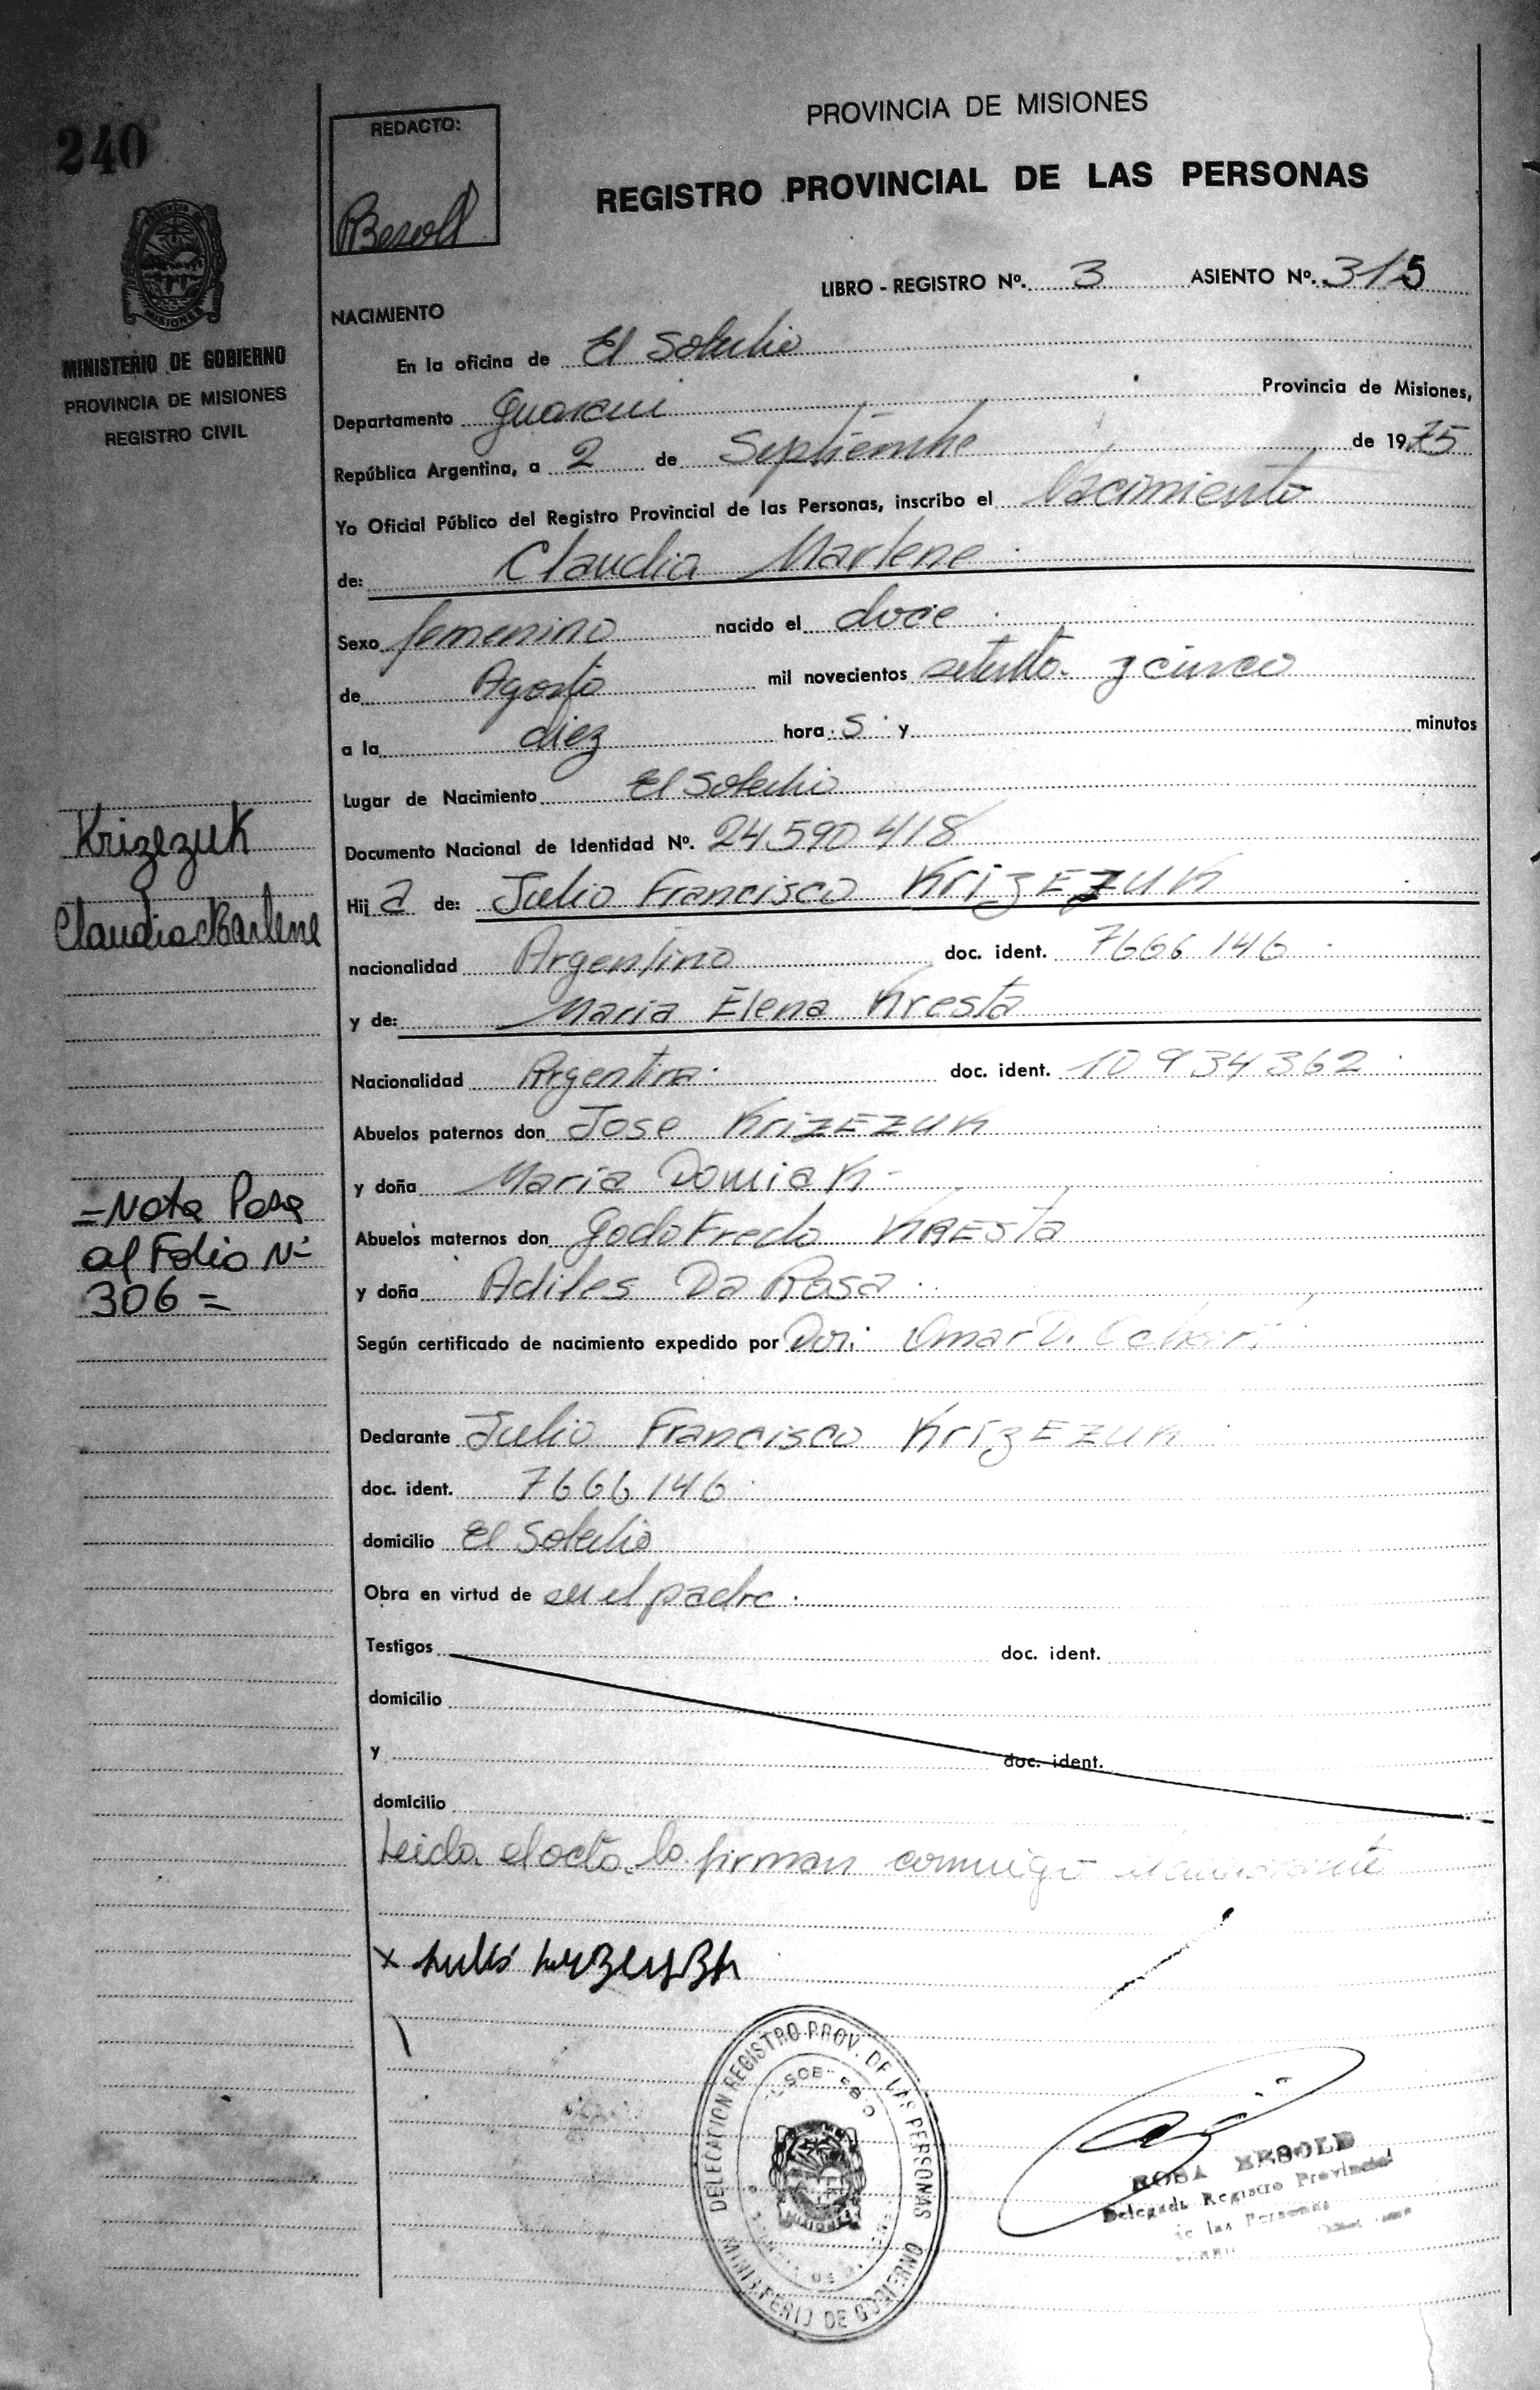 240
MINISTERIO DE GOBIERNO
PROVINCIA DE MISIONES
REGISTRO CIVIL
Krizezuk
Claudia Marlene
=Nota Pasa
al Folio Nº
306=
REDACTO:
PROVINCIA DE MISIONES
REGISTRO PROVINCIAL DE LAS PERSONAS
LIBRO - REGISTRO Nº. 3 ASIENTO Nº. 315
NACIMIENTO
En la oficina de El Soberbio
Departamento Guarani Provincia de Misiones,
República Argentina, a 2 de Septiembre de 1975
Yo Oficial Público del Registro Provincial de las Personas, inscribo el Nacimiento
de: Claudia Marlene
Sexo femenino nacido el doce
de Agosto mil novecientos setenta y cinco
a la diez hora s y minutos
Lugar de Nacimiento El Soberbio
Documento Nacional de Identidad Nº. 24590418
Hij a de: Julio Francisco KrizEzUK
nacionalidad Argentino doc. ident. 7666146
y de: Maria Elena Kresta
Nacionalidad Argentina doc. ident. 10934362
Abuelos paternos don Jose KrizEzUK
y doña Maria Domiak
Abuelos maternos don Godofredo KRESta
y doña Da Rosa
Según certificado de nacimiento expedido por Dor: Omar D.
Declarante Julio Francisco KrizEzUK
doc. ident. 7666146
domicilio El Soberbio
Obra en virtud de ser el padre.
Testigos doc. ident.
domicilio
y doc. ident.
domicilio
Leida el acta la firman conmigo el declarante
X
DELEGACION REGISTRO PROV. DE LAS PERSONAS
MINISTERIO DE GOBIERNO
MISIONES
ROSA BESOLD
Delegada Registro Provincial
de las Personas